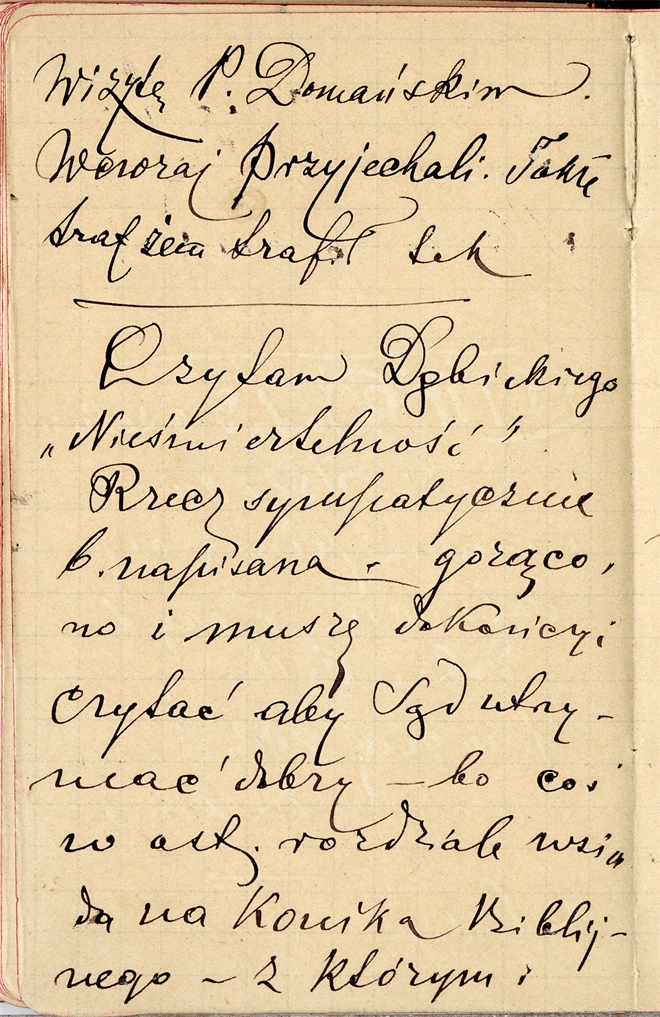 Wizytę P. Domańskim.
Wczoraj przyjechali. Także
trafił tek
Czytam Dębickiego
„Nieśmiertelność”
Rzecz sympatycznie
b. napisana - gorąco,
no i muszę dokończyć
czytać aby Sąd utrzy-
mać dobry – bo coś
w ost. rozdziale wsia
da na Konika Biblij-
nego – z którym i